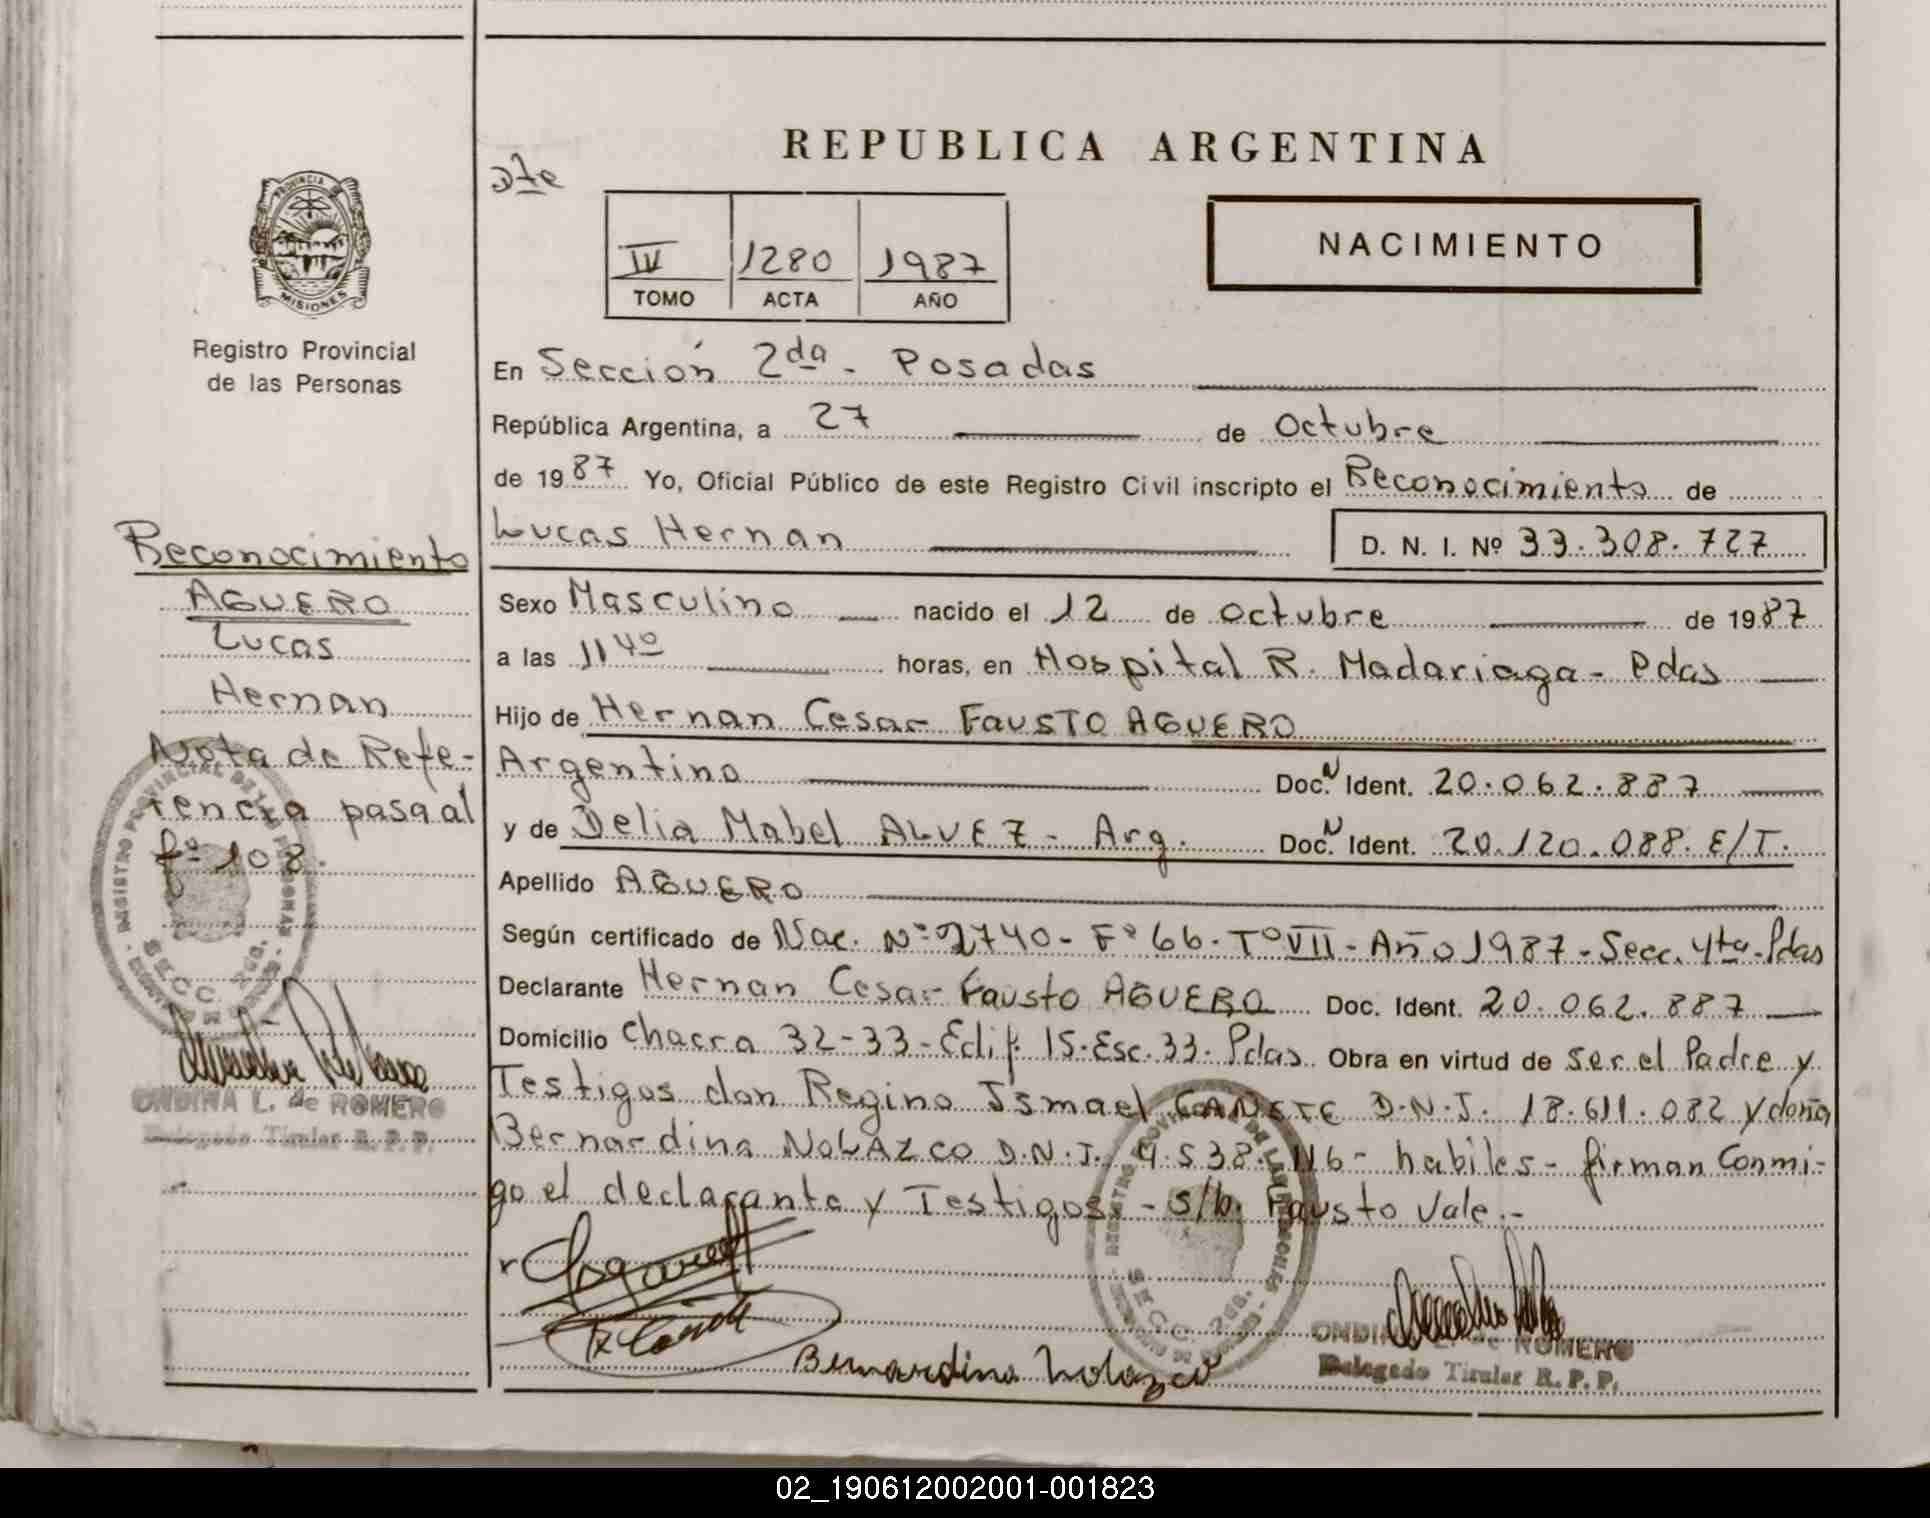 REPUBLICA ARGENTINA
Dte
IV 1280 1987
TOMO ACTA AÑO
NACIMIENTO
PROVINCIA DE
MISIONES
Registro Provincial
de las Personas
En Sección 2da - Posadas
República Argentina, a 27 de Octubre
de 1987 Yo, Oficial Público de este Registro Civil inscripto el Reconocimiento de
Lucas Hernan D. N. I. Nº 33.308.727
Sexo Masculino nacido el 12 de octubre de 1987
a las 11 40 horas, en Hospital R. Madariaga - Pdas
Hijo de Hernan Cesar Fausto AGUERO
Argentino Doc. N Ident. 20.062.887
y de Delia Mabel ALVEZ - Arg. Doc. N Ident. 20.120.088. E/T.
Apellido AGUERO
Según certificado de Nac. Nº 2740 - Fº 66 - Tº VII - Año 1987 - Secc. 4ta - Pdas
Declarante Hernan Cesar Fausto AGUERO Doc. Ident. 20.062.887
Domicilio Chacra 32-33 - Edif. 15 - Esc. 33. Pdas Obra en virtud de ser el Padre y
Testigos don Regino Ismael CANETE D.N.I. 18.611.082 y doña
Bernardina NOLAZCO D.N.I. 9.538.116 - habiles - firman conmi-
go el declarante y Testigos. - s/b. Fausto Vale.-
Bernardina Nolazco
ONDINA L. de ROMERO
Delegado Titular R. P. P.
Reconocimiento
AGUERO
Lucas
Hernan
Nota de Refe-
rencia pasa al
fº 108.
REGISTRO PROVINCIAL DE LAS PERSONAS
SECC. 2da.
ONDINA L. de ROMERO
Delegado Titular R. P. P.
02_190612002001-001823